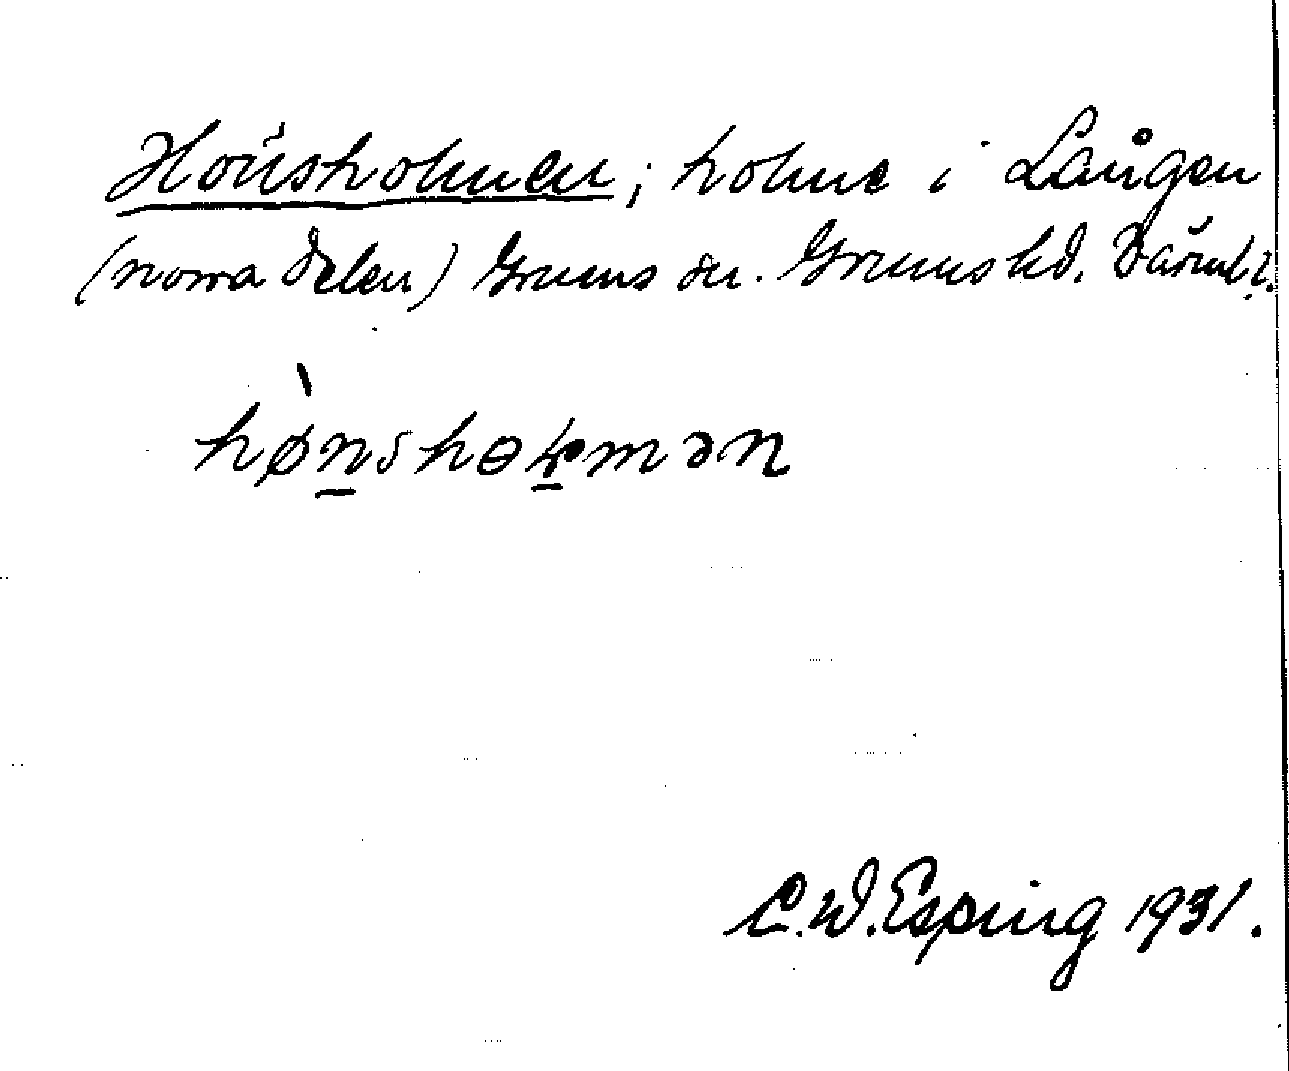 Hönsholmen; holme i Lången
(norra delen) Grums sn. Grums hd. Värml.
C.W. Esping 1931.